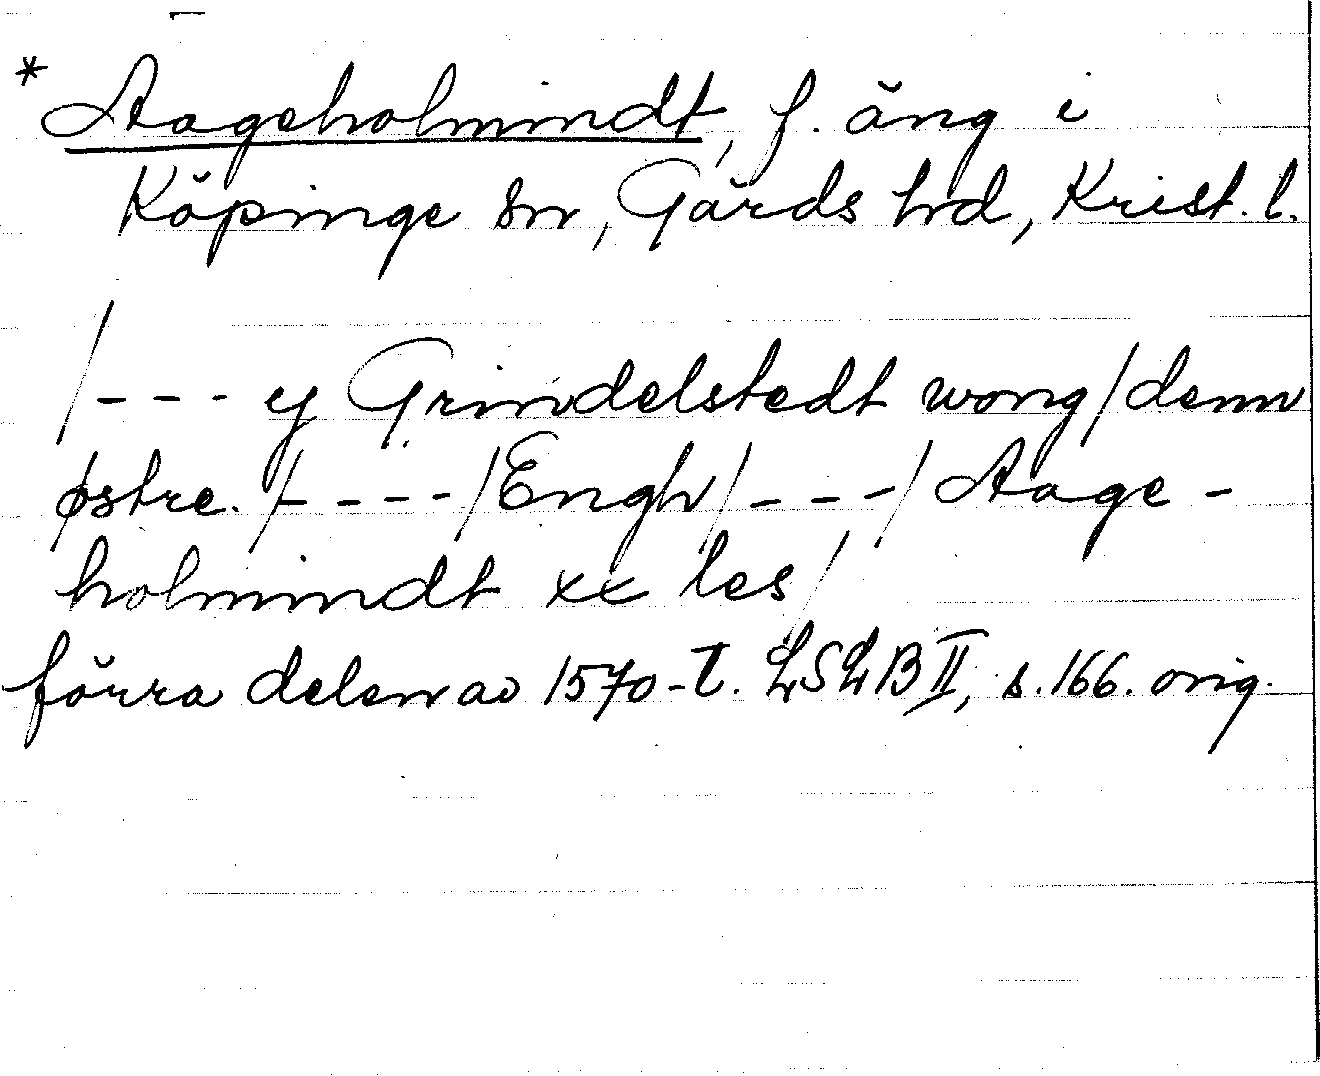 * Aageholmindt, f. äng i
Köpinge sn, Gärds hd, Krist. l.
/--- ej Grindelstedt wong/denn
østre. /----/Engh/---/Aage-
holmindt xx les/
förra delen av 1570-t. LSLB II, s. 166. orig.